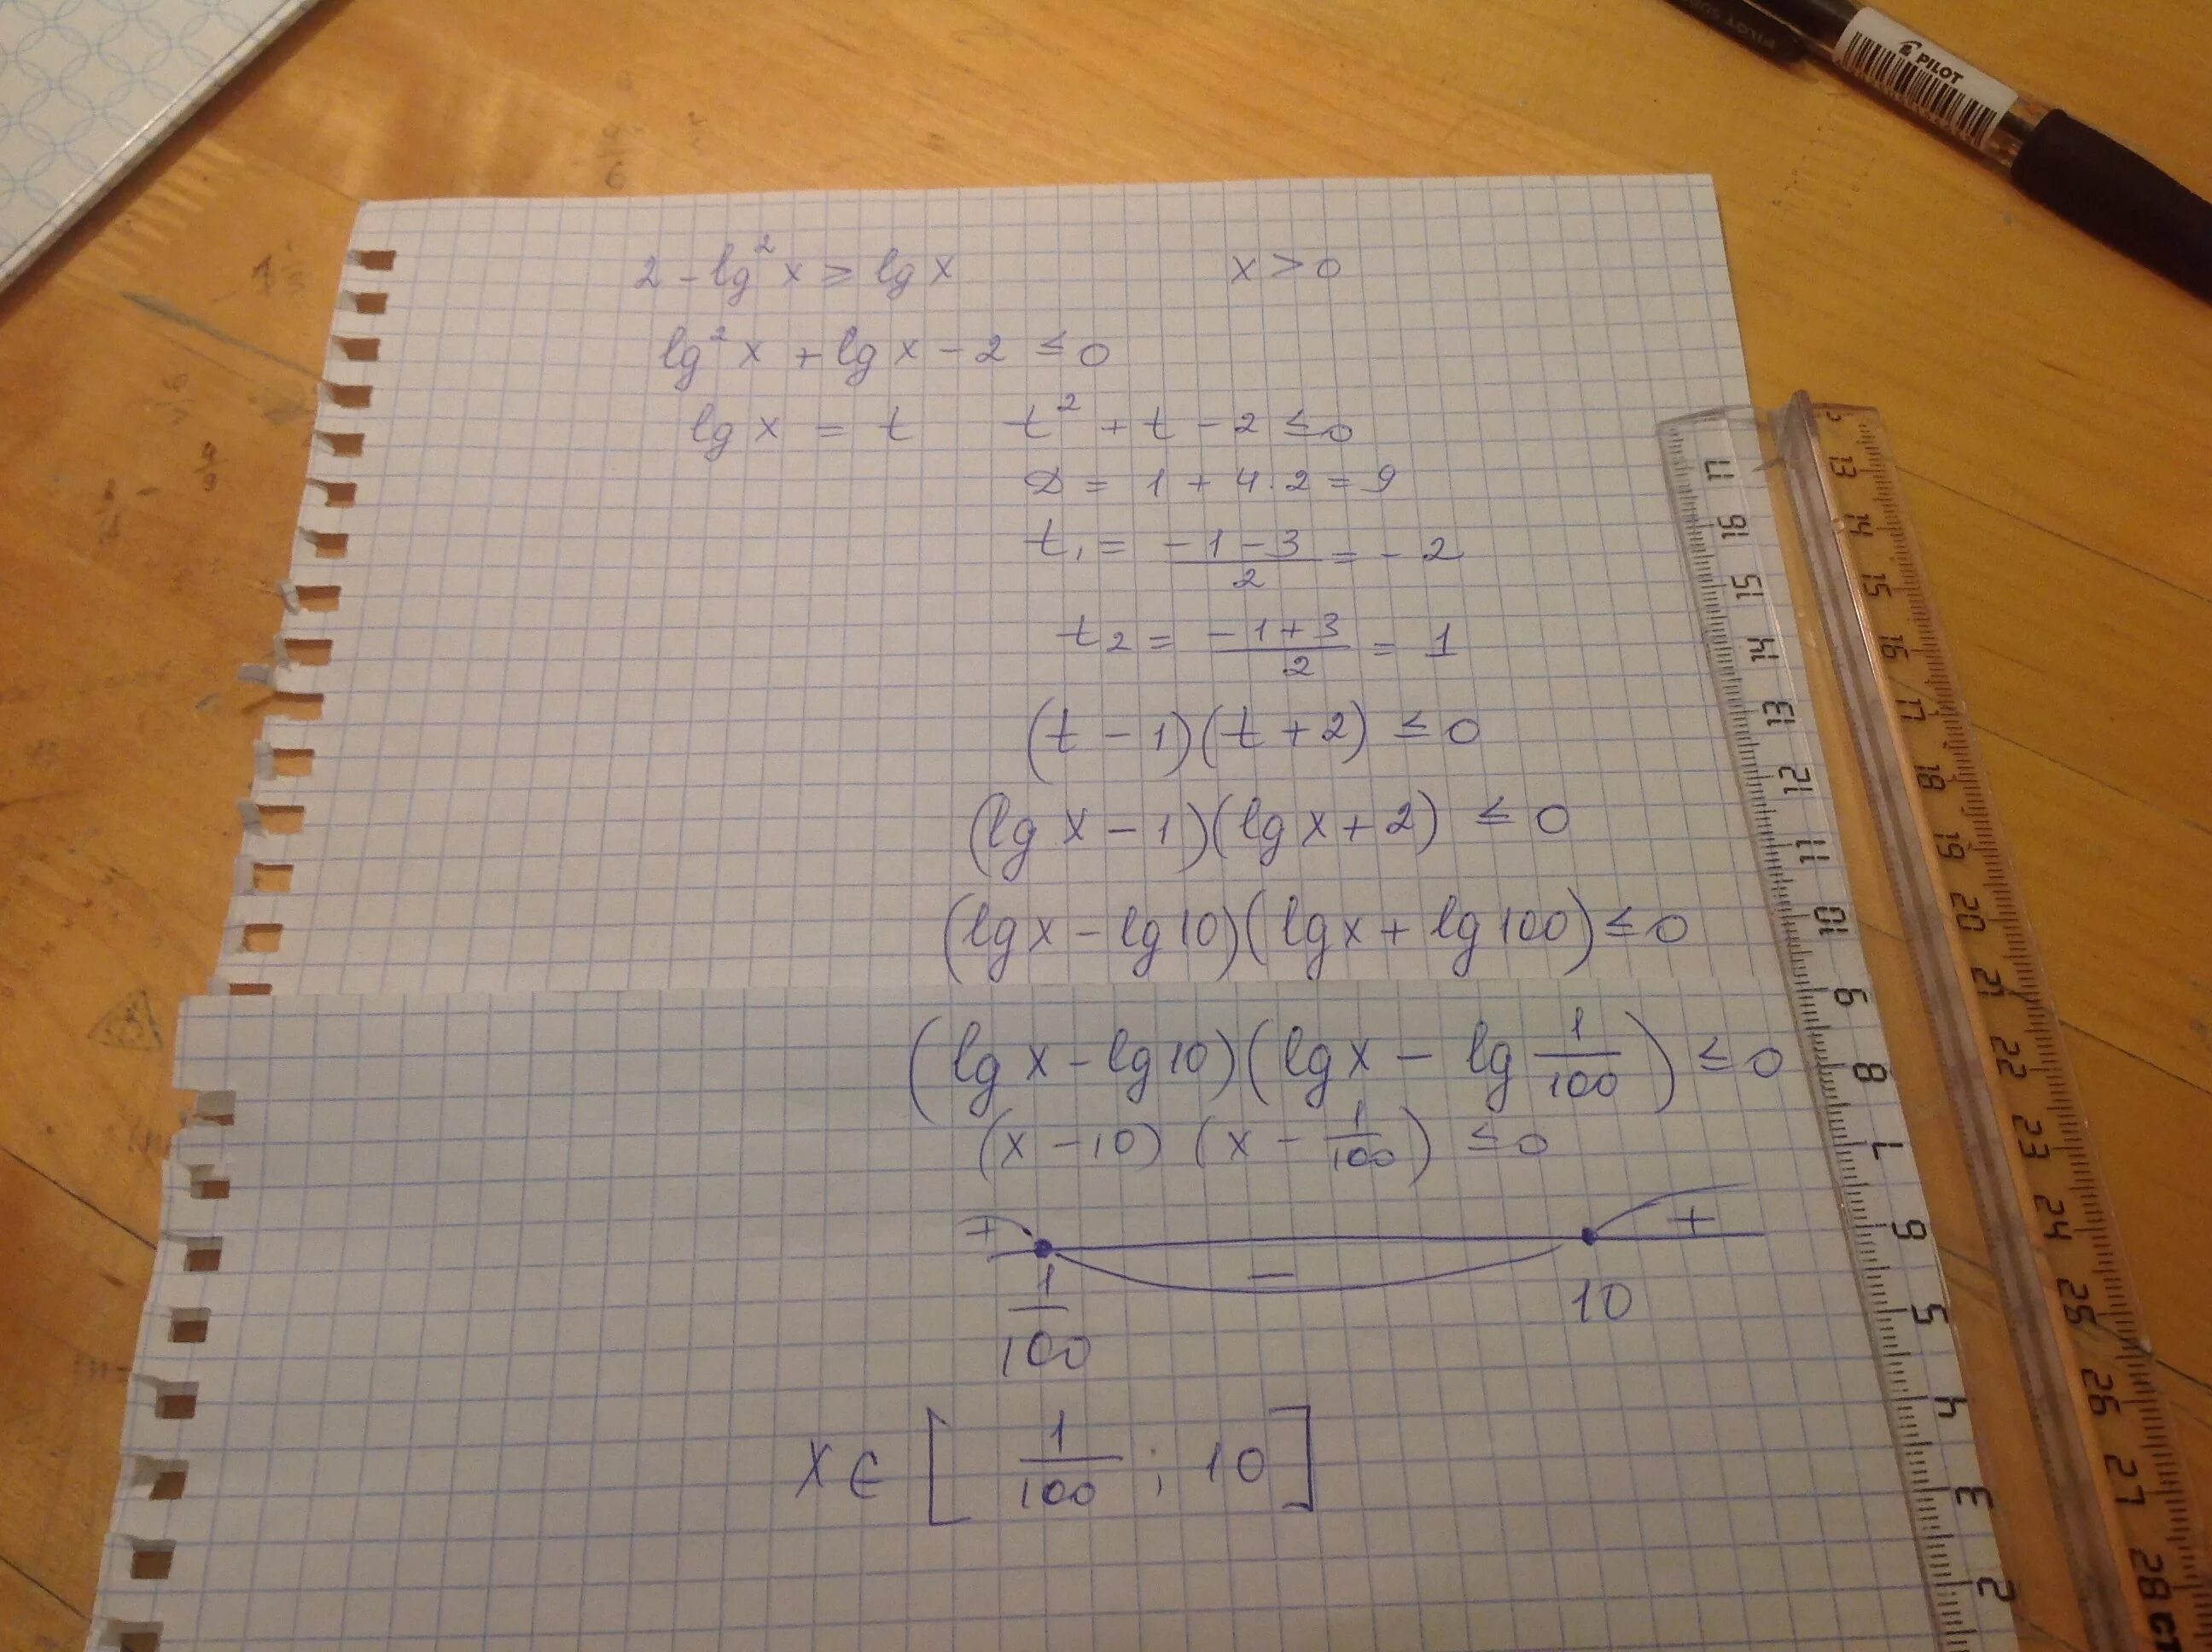 PILOT
2 - lg² x ≥ lg x    x > 0
lg² x + lg x - 2 ≤ 0
lg x = t    t² + t - 2 ≤ 0
D = 1 + 4 · 2 = 9
t₁ = (-1 - 3)/2 = -2
t₂ = (-1 + 3)/2 = 1
(t - 1)(t + 2) ≤ 0
(lg x - 1)(lg x + 2) ≤ 0
(lg x - lg 10)(lg x + lg 100) ≤ 0
(lg x - lg 10)(lg x - lg 1/100) ≤ 0
(x - 10)(x - 1/100) ≤ 0
+ − +
1/100    10
x ∈ [1/100 ; 10]
17 16 15 14 13 12 11 10 9 8 7 6 5 4 3 2
13 14 15 16 17 18 19 20 21 22 23 24 25 26 27 28